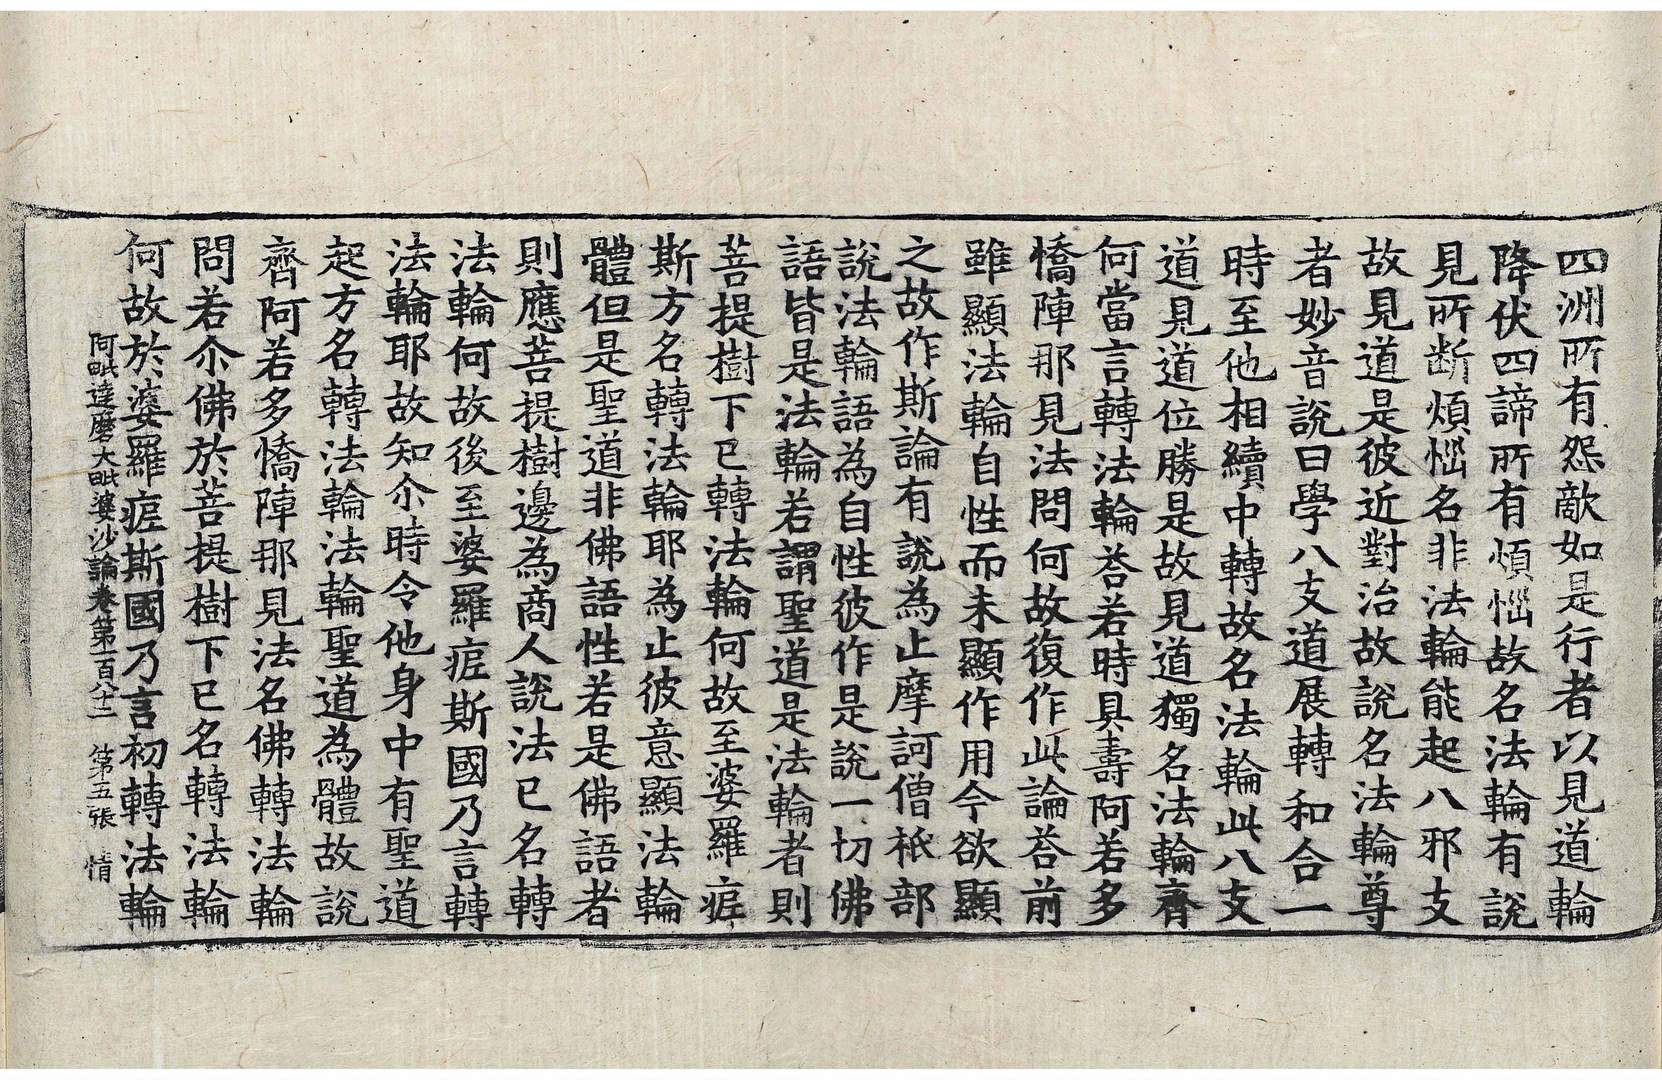 四洲所有怨敵如是行者以見道輪
降伏四諦所有煩惱故名法輪有說
見所断煩惱名非法輪能起八邪支
故見道是彼近對治故說名法輪尊
者妙音說曰學八支道展轉和合一
時至他相續中轉故名法輪此八支
道見道位勝是故見道獨名法輪齊
何當言轉法輪荅若時具壽阿若多
憍陣那見法問何故復作此論荅前
雖顯法輪自性而未顯作用今欲顯
之故作斯論有說為止摩訶僧祇部
說法輪語為自性彼作是說一切佛
語皆是法輪若謂聖道是法輪者則
菩提樹下已轉法輪何故至婆羅痆
斯方名轉法輪耶為止彼意顯法輪
體但是聖道非佛語性若是佛語者
則應菩提樹邊為商人說法已名轉
法輪何故後至婆羅痆斯國乃言轉
法輪耶故知尒時令他身中有聖道
起方名轉法輪法輪聖道為體故說
齊阿若多憍陣那見法名佛轉法輪
問若尒佛於菩提樹下已名轉法輪
何故於婆羅痆斯國乃言初轉法輪
阿毗達磨大毗婆沙論卷第一百八十二 第五張 情